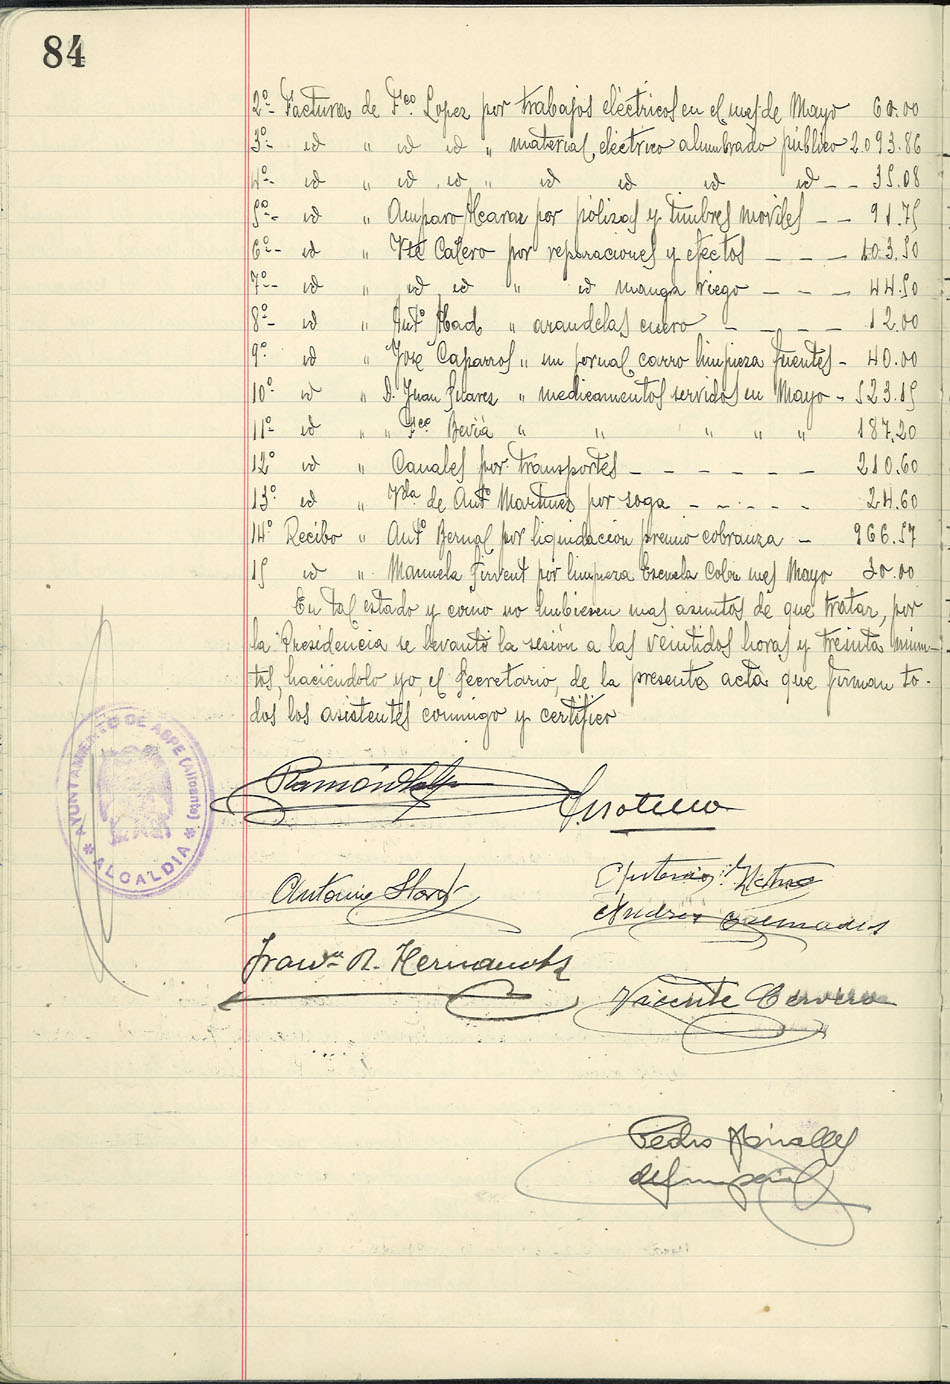 84
2º- Facturas de Fco. Lopez por trabajos eléctricos en el mes de Mayo 60.00
3º- id " id id " material eléctrico alumbrado público 2.093.86
4º- id " id id " id id id id - - 35.08
5º- id " Amparo Alcaraz por polizas y timbres moviles - - 91.75
6º- id " Vte Calero por reparaciones y efectos - - - 103.50
7º- id " id id " id manga riego - - - 44.50
8º- id " Antº Abad " arandelas cuero - - - - 12.00
9º id " José Caparros " un jornal carro limpieza fuentes - 40.00
10º id " D. Juan " medicamentos servidos en Mayo - 523.15
11º- id " " Fco Beviá " " " " " 187,20
12º id " Canales por transportes - - - - - - 210.60
13º id " Vda de Antº Martinez por soga - - - - - 24.60
14º Recibo " Antº Bernal por liquidacion premio cobranza - 966.57
15 id " Manuela Firvent por limpieza Escuela Cobre mes Mayo 30.00
En tal estado y como no hubiesen mas asuntos de que tratar, por
la Presidencia se levantó la sesión a las veintidos horas y treinta minu-
tos, haciéndolo yo, el Secretario, de la presente acta que firman to-
dos los asistentes conmigo y certifico
AYUNTAMIENTO DE ASPE (Alicante)
* ALCALDIA *
Ramón
Antonio
Antonio
Andres Cremades
Franco. R. Hernandez
Vicente Cervera
Pedro Miralles